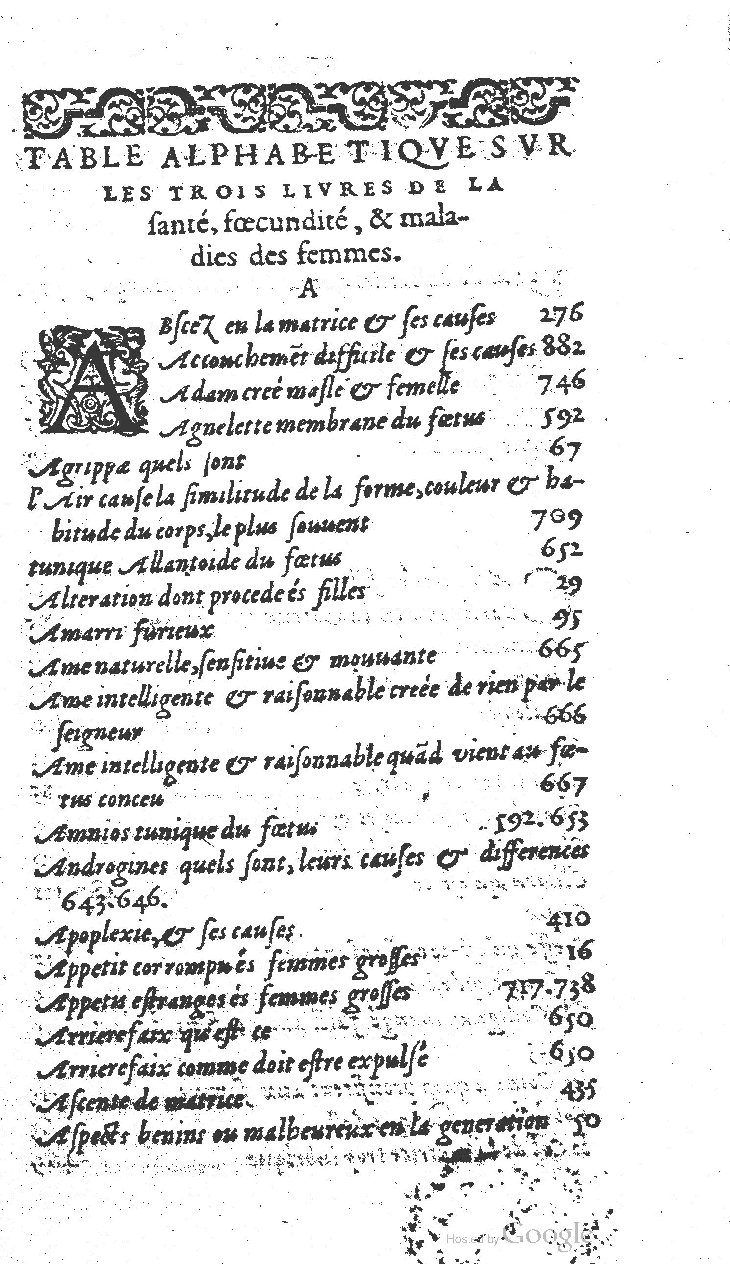 TABLE ALPHABETIQVE SVR
LES TROIS LIVRES DE LA
ſanté, fœcundité, & mala-
dies des femmes.
A
ABſcez en la matrice & ſes causes 276
Accouchemẽt difficile & ſes cauſes 882
Adam creé maſle & femelle 746
Agnelette membrane du fœtus 592
Agrippæ quels ſont 67
l'Air cauſe la ſimilitude de la forme, couleur & ha-
bitude du corps, le plus ſouuent 709
tunique Allantoide du fœtus 652
Alteration dont procede és filles 29
Amarri furieux 95
Ame naturelle, ſenſitiue & mouuante 665
Ame intelligente & raiſonnable creée de rien par le
ſeigneur 666
Ame intelligente & raiſonnable quãd vient au fœ-
tus conceu 667
Amnios tunique du fœtus 592.653
Androgines quels ſont, leurs cauſes & differences
643.646.
Apoplexie, & ſes cauſes. 410
Appetit corrompu és femmes groſſes 16
Appetit eſtranges és femmes groſſes 717.738
Arrierefaix qu'eſt ce 650
Arrierefaix comme doit eſtre expulſé 650
Aſcente de matrice. 435
Aſpects benins ou malheureux en la generation 50
Hosted by Google